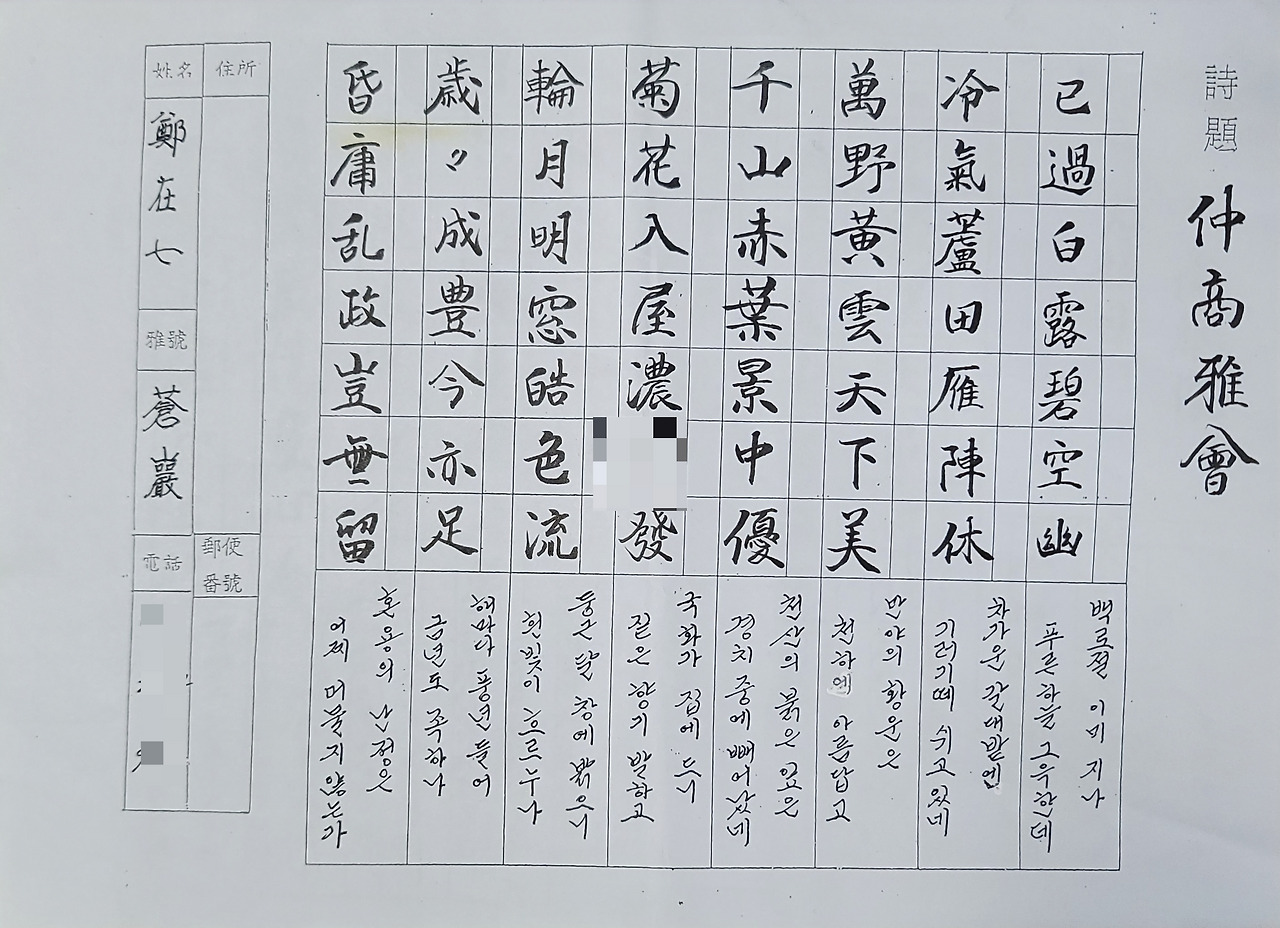 詩題 仲商雅會
已過白露碧空幽
백로절 이미 지나
푸른하늘 그윽한데
冷氣蘆田雁陣休
차가운 갈대밭엔
기러기떼 쉬고 있네
萬野黃雲天下美
만야의 황운은
천하에 아름답고
千山赤葉景中優
천산의 붉은 잎은
경치 중에 빼어났네
菊花入屋濃發
국화가 집에 드니
짙은 향기 발하고
輪月明窓皓色流
둥근 달 창에 밝으니
흰빛이 흐르누나
歲〃成豊今亦足
해마다 풍년들어
금년도 족하나
昏庸乱政豈無留
혼용의 난정은
어찌 머물지 않는가
住所
郵便番號
姓名
鄭在七
雅號
蒼巖
電話